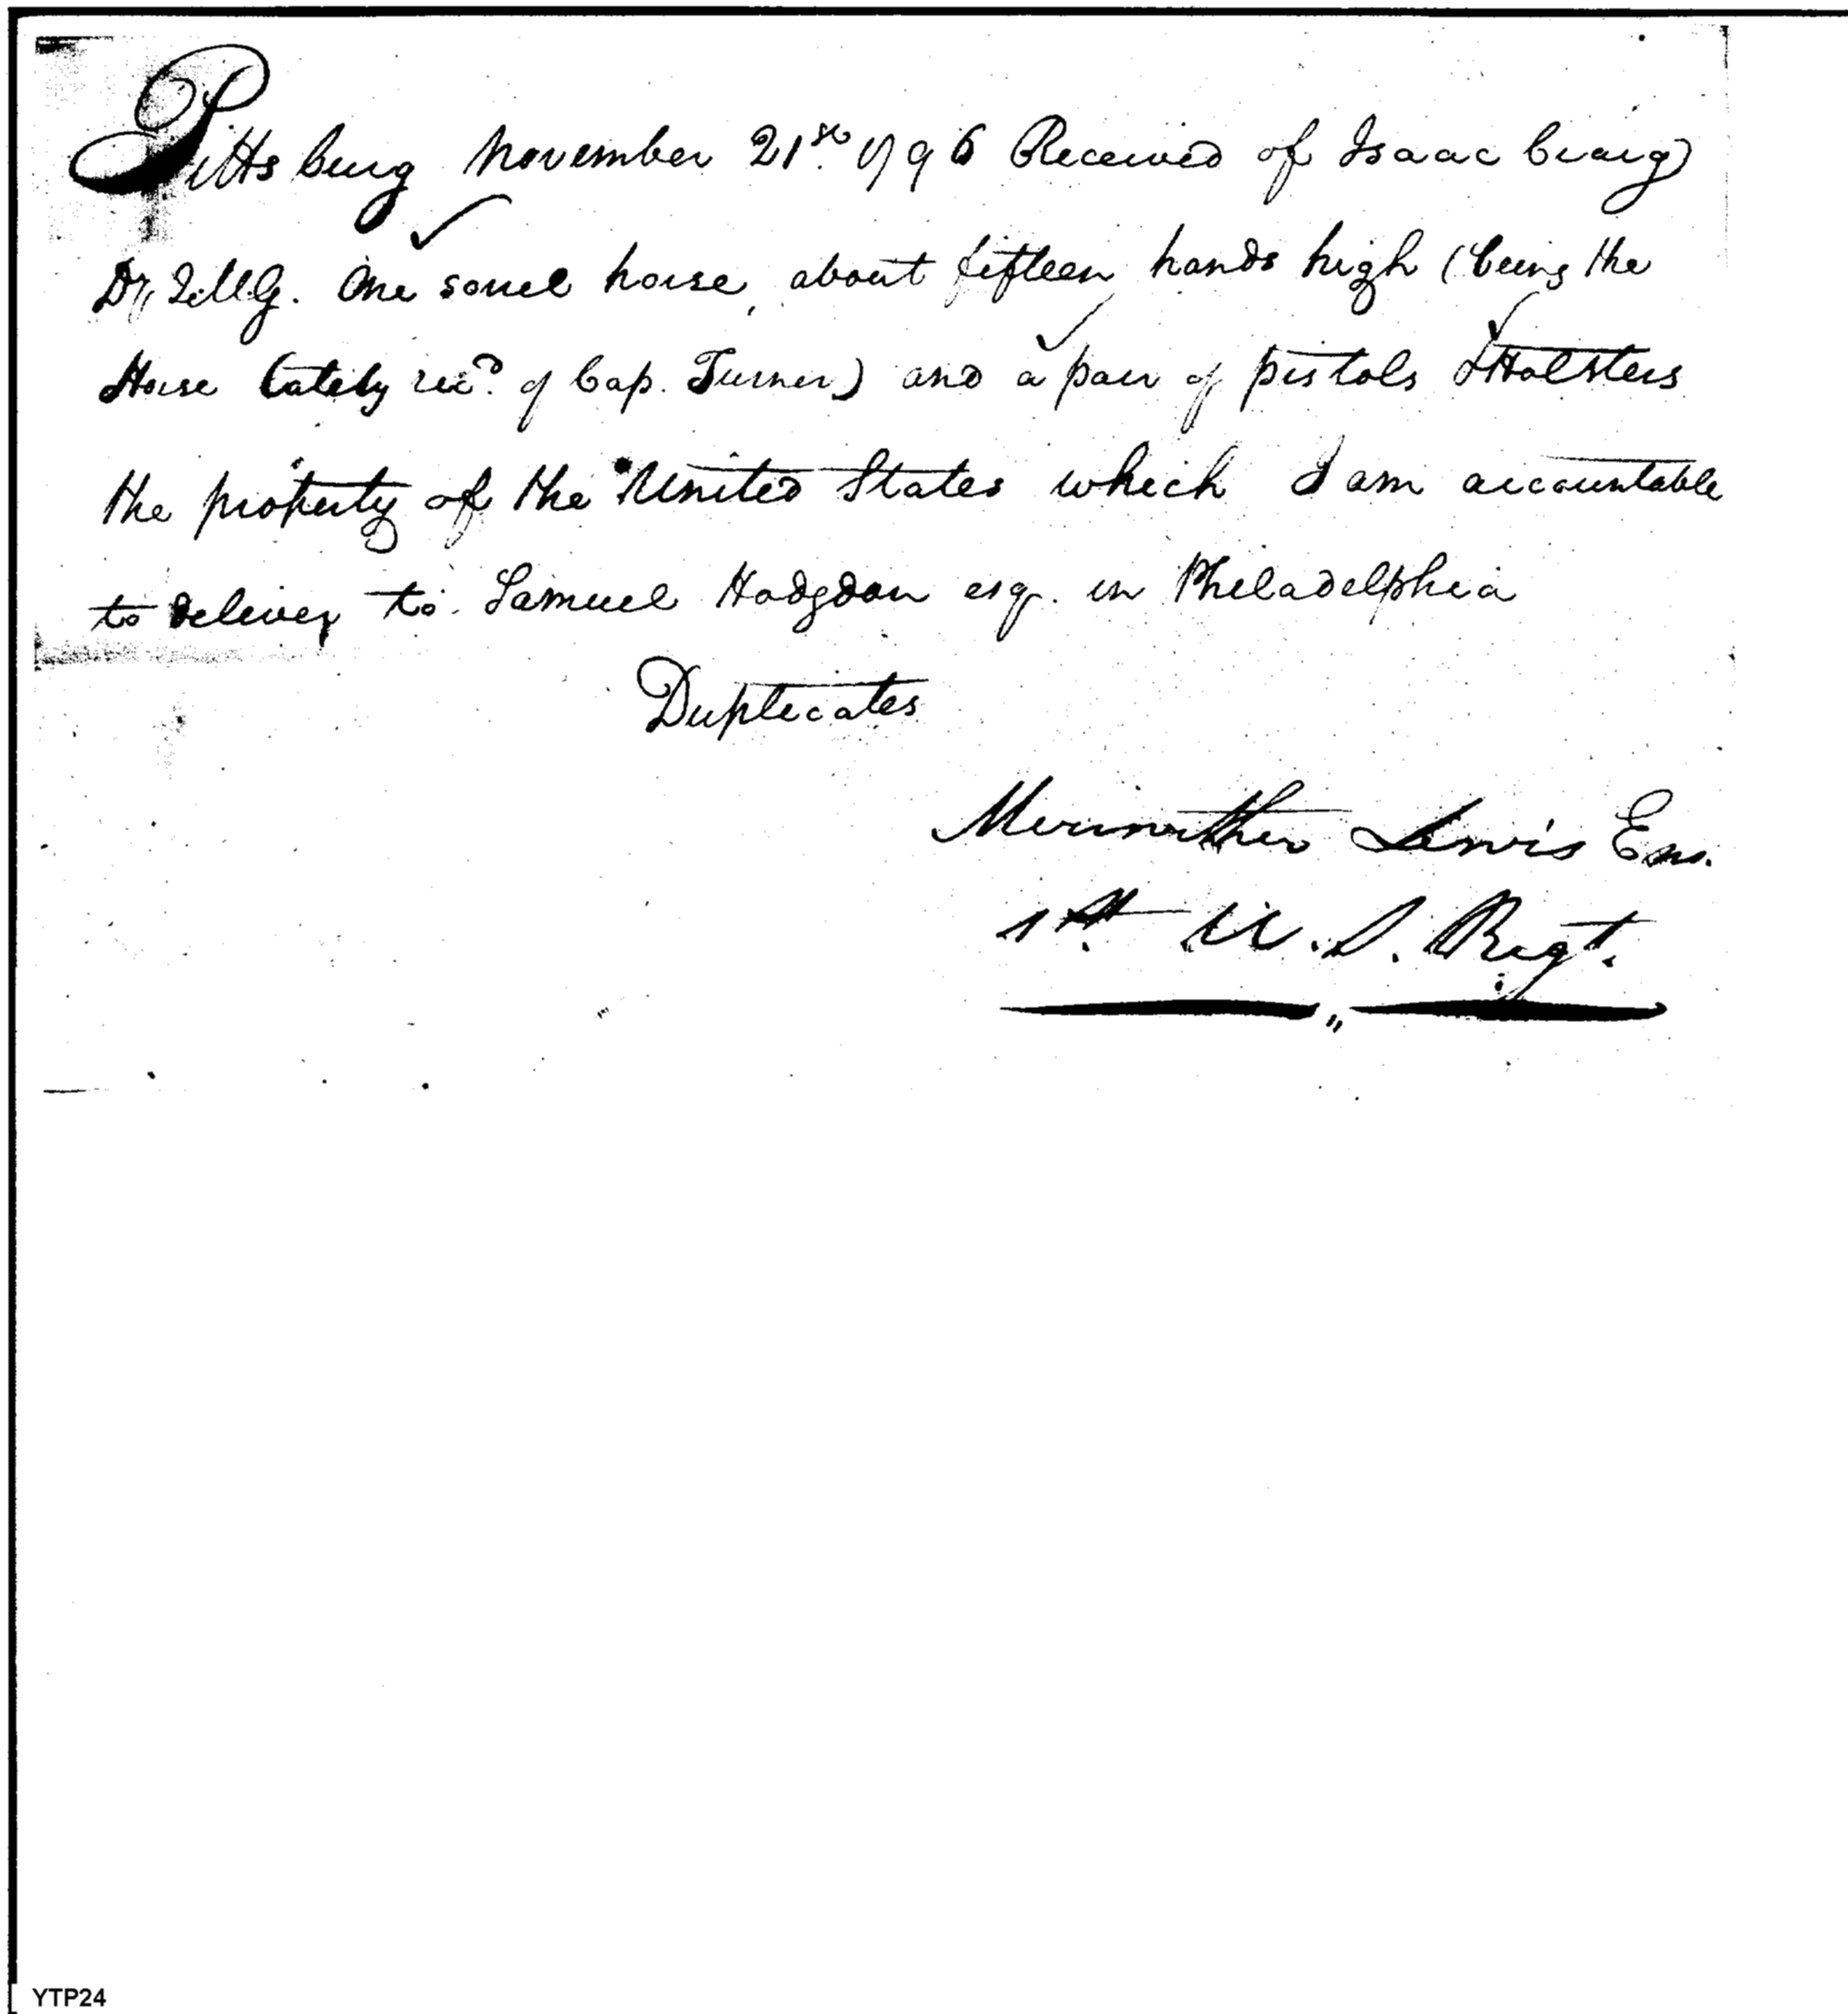 Pittsburg November 21st. 1796 Received of Isaac Craig
D,, Q.M.G. One sorrel horse, about fifteen hands high (being the
Horse lately recd. of Cap. Turner) and a pair of pistols & Holsters
the property of the United States which I am accountable
to deliver to Samuel Hodgdon esqr. in Philadelphia
Duplicates
Meriwether Lewis Ens.
1st. U.S. Regt.
YTP24